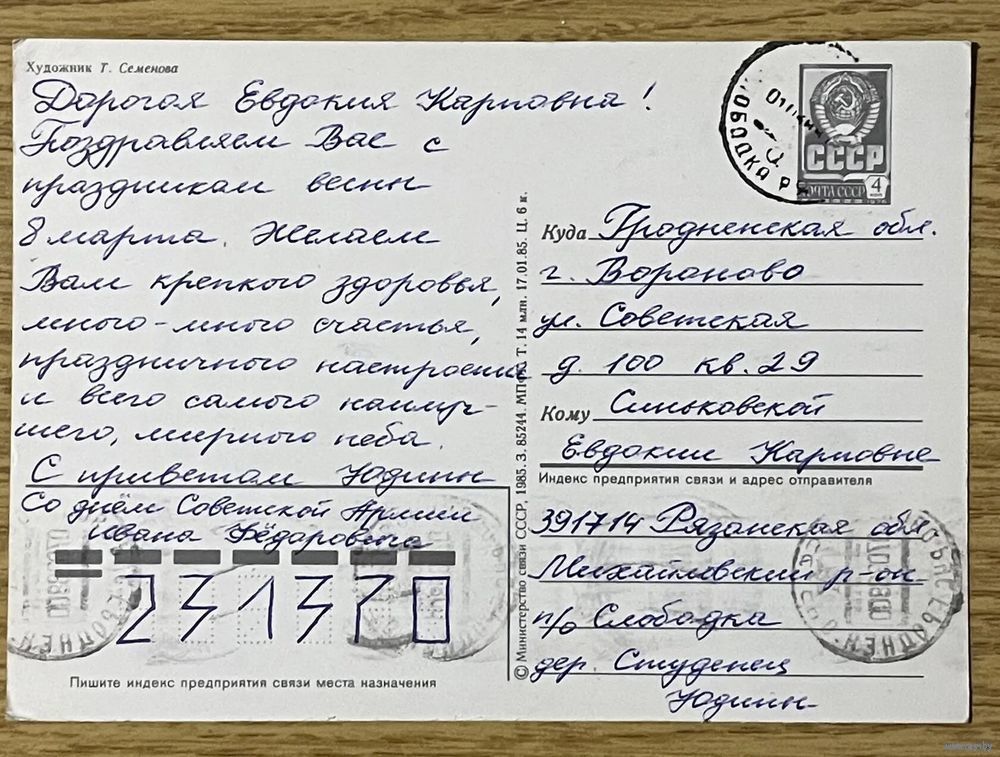 Художник Т. Семенова
Дорогая Евдокия Карповна!
Поздравляем Вас с
праздником весны
8 марта. Желаем
Вам крепкого здоровья,
много-много счастья,
праздничного настроения
и всего самого наилуч-
шего, мирного неба.
С приветом Юдины
Со днём Советской Армии
Ивана Фёдоровича
231370
Пишите индекс предприятия связи места назначения
© Министерство связи СССР, 1985. З. 85244. МПФГ. Т. 14 млн. 17.01.85. Ц. 6 к.
ОБОДКА
СССР
ПОЧТА СССР
4
1976
Куда Гродненская обл.
г. Вороново
ул. Советская
д. 100 кв. 29
Кому Синьковской
Евдокии Карповне
Индекс предприятия связи и адрес отправителя
391714 Рязанская обл
Михайловский р-он
п/о Слободка
дер. Студенец
Юдины